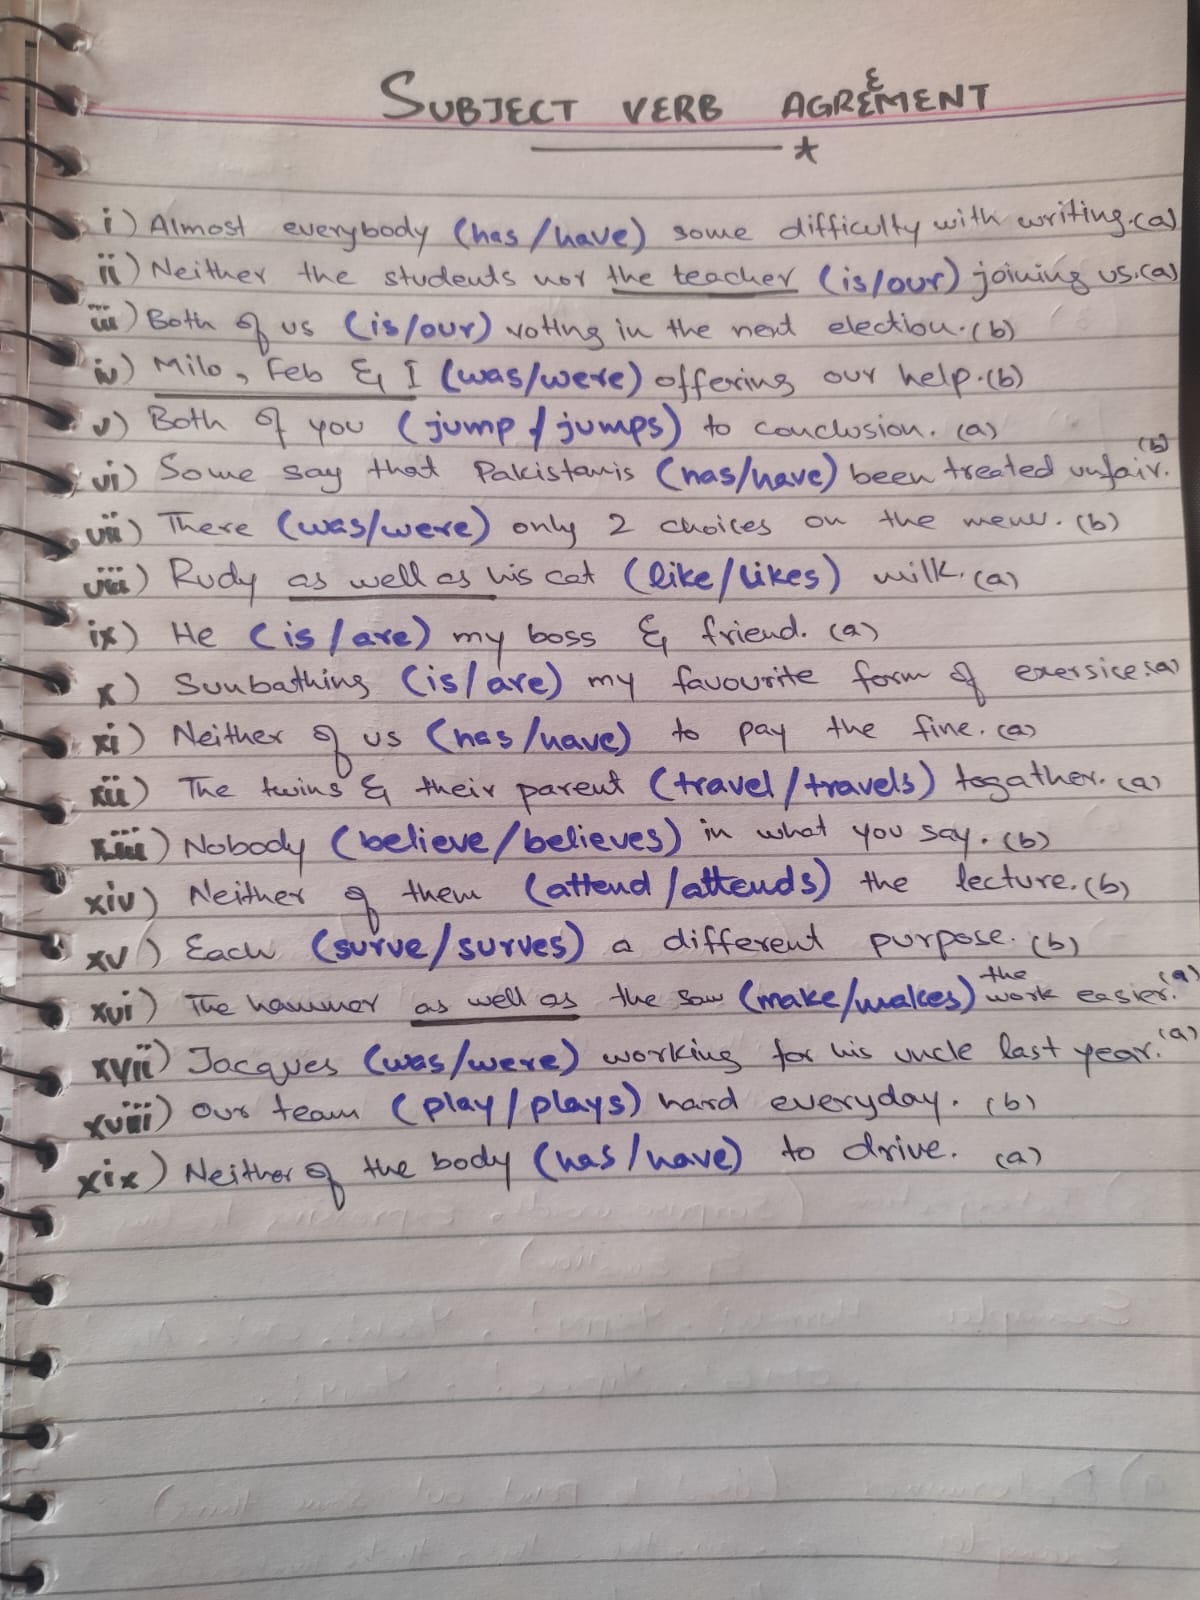 SUBJECT VERB AGREEMENT
i) Almost everybody (has/have) some difficulty with writing.(a)
ii) Neither the students nor the teacher (is/our) joining us.(a)
iii) Both of us (is/our) voting in the next election.(b)
iv) Milo, Feb & I (was/were) offering our help.(b)
v) Both of you (jump/jumps) to conclusion. (a)
vi) Some say that Pakistanis (has/have) been treated unfair.(b)
vii) There (was/were) only 2 choices on the menu. (b)
viii) Rudy as well as his cat (like/likes) milk. (a)
ix) He (is/are) my boss & friend. (a)
x) Sunbathing (is/are) my favourite form of exersice.(a)
xi) Neither of us (has/have) to pay the fine. (a)
xii) The twins & their parent (travel/travels) togather. (a)
xiii) Nobody (believe/believes) in what you say. (b)
xiv) Neither of them (attend/attends) the lecture. (b)
xv) Each (surve/surves) a different purpose. (b)
xvi) The hammer as well as the saw (make/makes) the work easier.(a)
xvii) Jacques (was/were) working for his uncle last year.(a)
xviii) Our team (play/plays) hard everyday. (b)
xix) Neither of the body (has/have) to drive. (a)